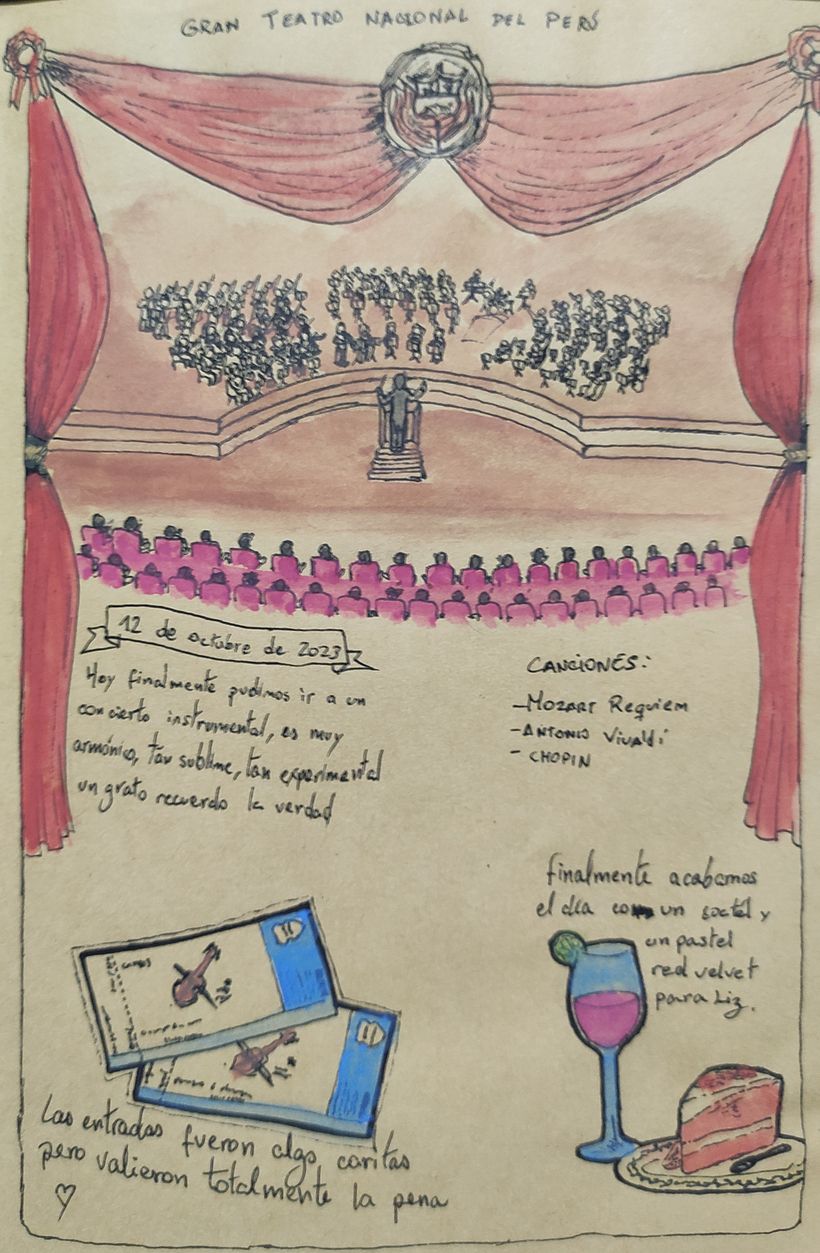 GRAN TEATRO NACIONAL DEL PERÚ
12 de octubre de 2023
Hoy finalmente pudimos ir a un
concierto instrumental, es muy
armónico, tan sublime, tan experimental
un grato recuerdo la verdad
CANCIONES:
-MOZART Requiem
-ANTONIO VIVALDI
- CHOPIN
finalmente acabamos
el día con un coctél y
un pastel
red velvet
para Liz.
Las entradas fueron algo caritas
pero valieron totalmente la pena